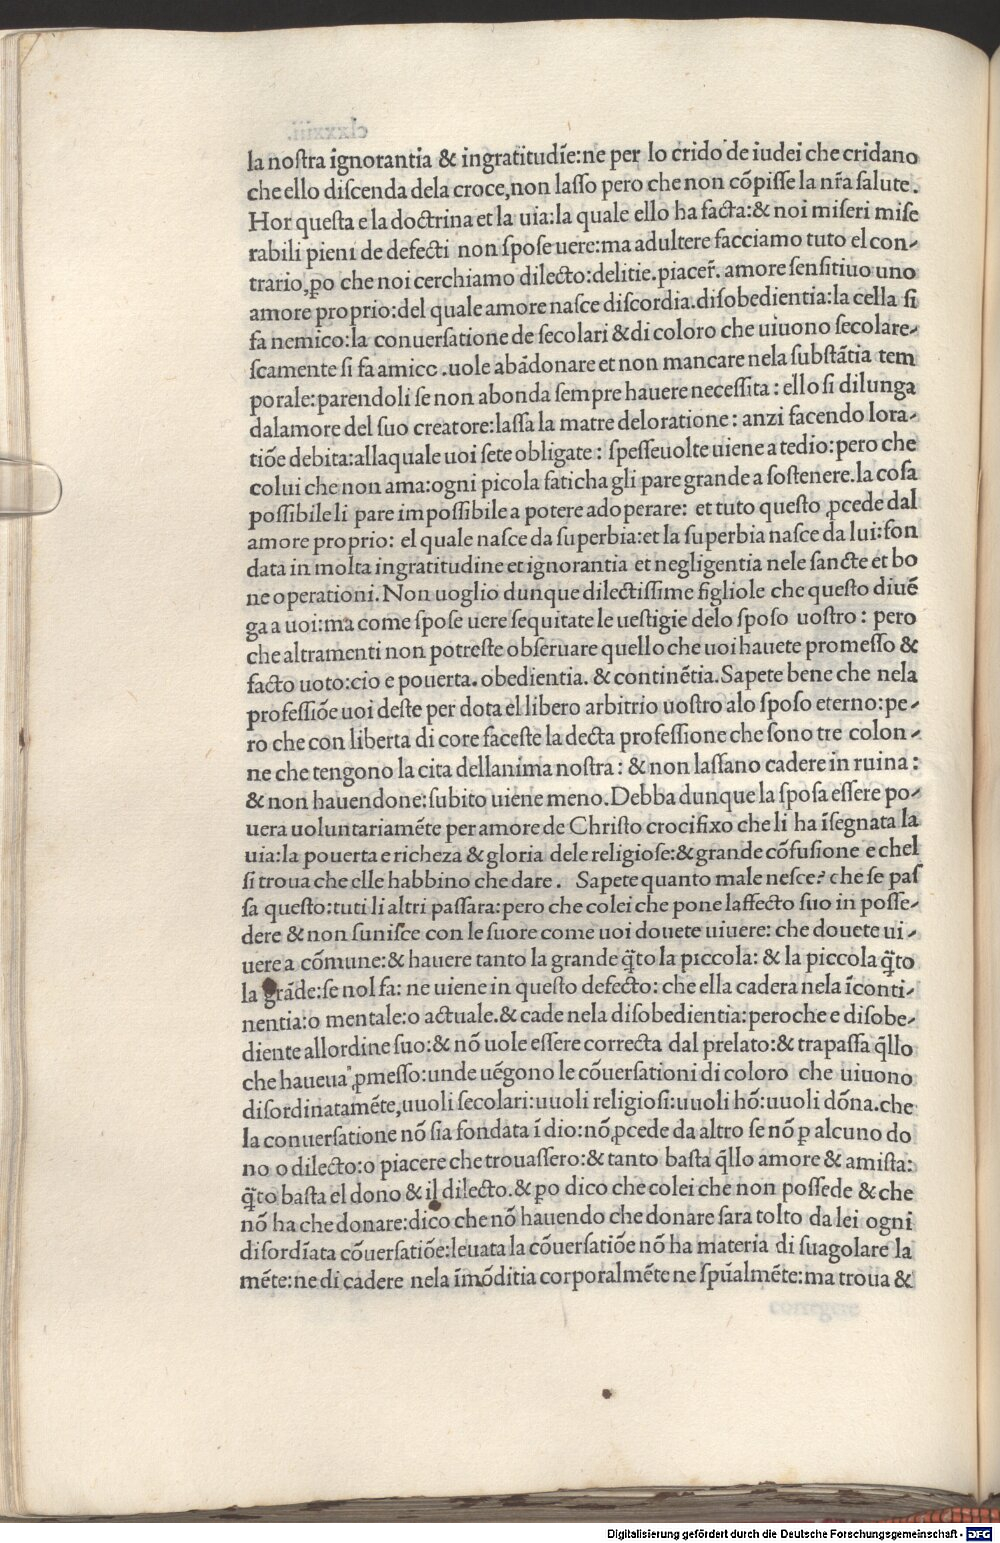 la noſtra ignorantia & ingratitudīe:ne per lo crido de iudei che cridano
che ello diſcenda dela croce,non laſſo pero che non cōpiſſe la nr̄a ſalute.
Hor queſta e la doctrina et la uia:la quale ello ha facta:& noi miſeri miſe
rabili pieni de defecti non ſpoſe uere:ma adultere facciamo tuto el con-
trario,ꝑo che noi cerchiamo dilecto:delitie.piacer̄. amore ſenſitiuo uno
amore proprio:del quale amore naſce diſcordia.diſobedientia:la cella ſi
fa nemico:la conuerſatione de ſecolari & di coloro che uiuono ſecolare-
ſcamente ſi fa amico.uole abādonare et non mancare nela ſubſtātia tem
porale:parendoli ſe non abonda ſempre hauere neceſſita: ello ſi dilunga
dalamore del ſuo creatore:laſſa la matre deloratione: anzi facendo lora-
tiōe debita:allaquale uoi ſete obligate: ſpeſſeuolte uiene a tedio:pero che
colui che non ama:ogni picola faticha gli pare grande a ſoſtenere.la coſa
poſſibile li pare impoſſibile a potere adoperare: et tuto queſto ꝓcede dal
amore proprio: el quale naſce da ſuperbia:et la ſuperbia naſce da lui:fon
data in molta ingratitudine et ignorantia et negligentia nele ſancte et bo
ne operationi. Non uoglio dunque dilectiſſime figliole che queſto diuē
ga a uoi:ma come ſpoſe uere ſequitate le ueſtigie delo ſpoſo uoſtro: pero
che altramenti non potreſte obſeruare quello che uoi hauete promeſſo &
facto uoto:cio e pouerta. obedientia. & continētia. Sapete bene che nela
profeſſiōe uoi deſte per dota el libero arbitrio uoſtro alo ſpoſo eterno:pe-
ro che con liberta di core faceſte la decta profeſſione che ſono tre colon-
ne che tengono la cita dellanima noſtra: & non laſſano cadere in ruina:
& non hauendone:ſubito uiene meno. Debba dunque la ſpoſa eſſere po-
uera uoluntariamēte per amore de Chriſto crocifixo che li ha īſegnata la
uia:la pouerta e richeza & gloria dele religioſe:& grande cōfuſione e chel
ſi troua che elle habbino che dare. Sapete quanto male neſce? che ſe paſ
ſa queſto:tuti li altri paſſara:pero che colei che pone laffecto ſuo in poſſe-
dere & non ſuniſce con le ſuore come uoi douete uiuere: che douete ui-
uere a cōmune:& hauere tanto la grande q̄to la piccola: & la piccola q̄to
la grāde:ſe nol fa: ne uiene in queſto defecto: che ella cadera nela īconti-
nentia:o mentale:o actuale.& cade nela diſobedientia:peroche e diſobe-
diente allordine ſuo:& nō uole eſſere correcta dal prelato:& trapaſſa q̄llo
che haueua ꝓmeſſo:unde uēgono le cōuerſationi di coloro che uiuono
diſordinatamēte,uuoli ſecolari:uuoli religioſi:uuoli hō:uuoli dōna.che
la conuerſatione nō ſia fondata ī dio:nō ꝓcede da altro ſe nō ꝑ alcuno do
no o dilecto:o piacere che trouaſſero:& tanto baſta q̄llo amore & amiſta:
q̄to baſta el dono & il dilecto.& ꝑo dico che colei che non poſſede & che
nō ha che donare:dico che nō hauendo che donare ſara tolto da lei ogni
diſordīata cōuerſatiōe:leuata la cōuerſatiōe nō ha materia di ſuagolare la
mēte:ne di cadere nela īmōditia corporalmēte ne ſpūalmēte:ma troua &
Digitalisierung gefördert durch die Deutsche Forschungsgemeinschaft - DFG